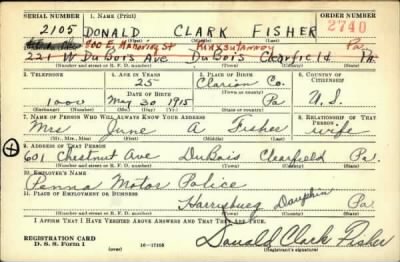 SERIAL NUMBER 1. NAME (Print) ORDER NUMBER
2105 DONALD CLARK FISHER 2740
(First) (Middle) (Last)
900 E. Mahoning St Punxsutawney Pa.
221 W DuBois Ave DuBois Clearfield PA.
(Number and street or R. F. D. number) (Town) (County) (State)
3. TELEPHONE 4. AGE IN YEARS 5. PLACE OF BIRTH 6. COUNTRY OF CITIZENSHIP
25 Clarion Co.
DATE OF BIRTH (Town or county)
1000 May 30 1915 Pa U.S.
(Exchange) (No.) (Mo.) (Day) (Yr.) (State or country)
7. NAME OF PERSON WHO WILL ALWAYS KNOW YOUR ADDRESS 8. RELATIONSHIP OF THAT PERSON
Mrs June A Fisher wife
(Mr., Mrs., Miss) (First) (Middle) (Last)
9. ADDRESS OF THAT PERSON
601 Chestnut Ave DuBois Clearfield Pa.
(Number and street or R. F. D. number) (Town) (County) (State)
10. EMPLOYER'S NAME
Penna Motor Police
11. PLACE OF EMPLOYMENT OR BUSINESS
Harrisburg Dauphin Pa
(Number and street or R. F. D. number) (Town) (County) (State)
I AFFIRM THAT I HAVE VERIFIED ABOVE ANSWERS AND THAT THEY ARE TRUE.
REGISTRATION CARD
D. S. S. Form 1 (over) 16-17105 Donald Clark Fisher